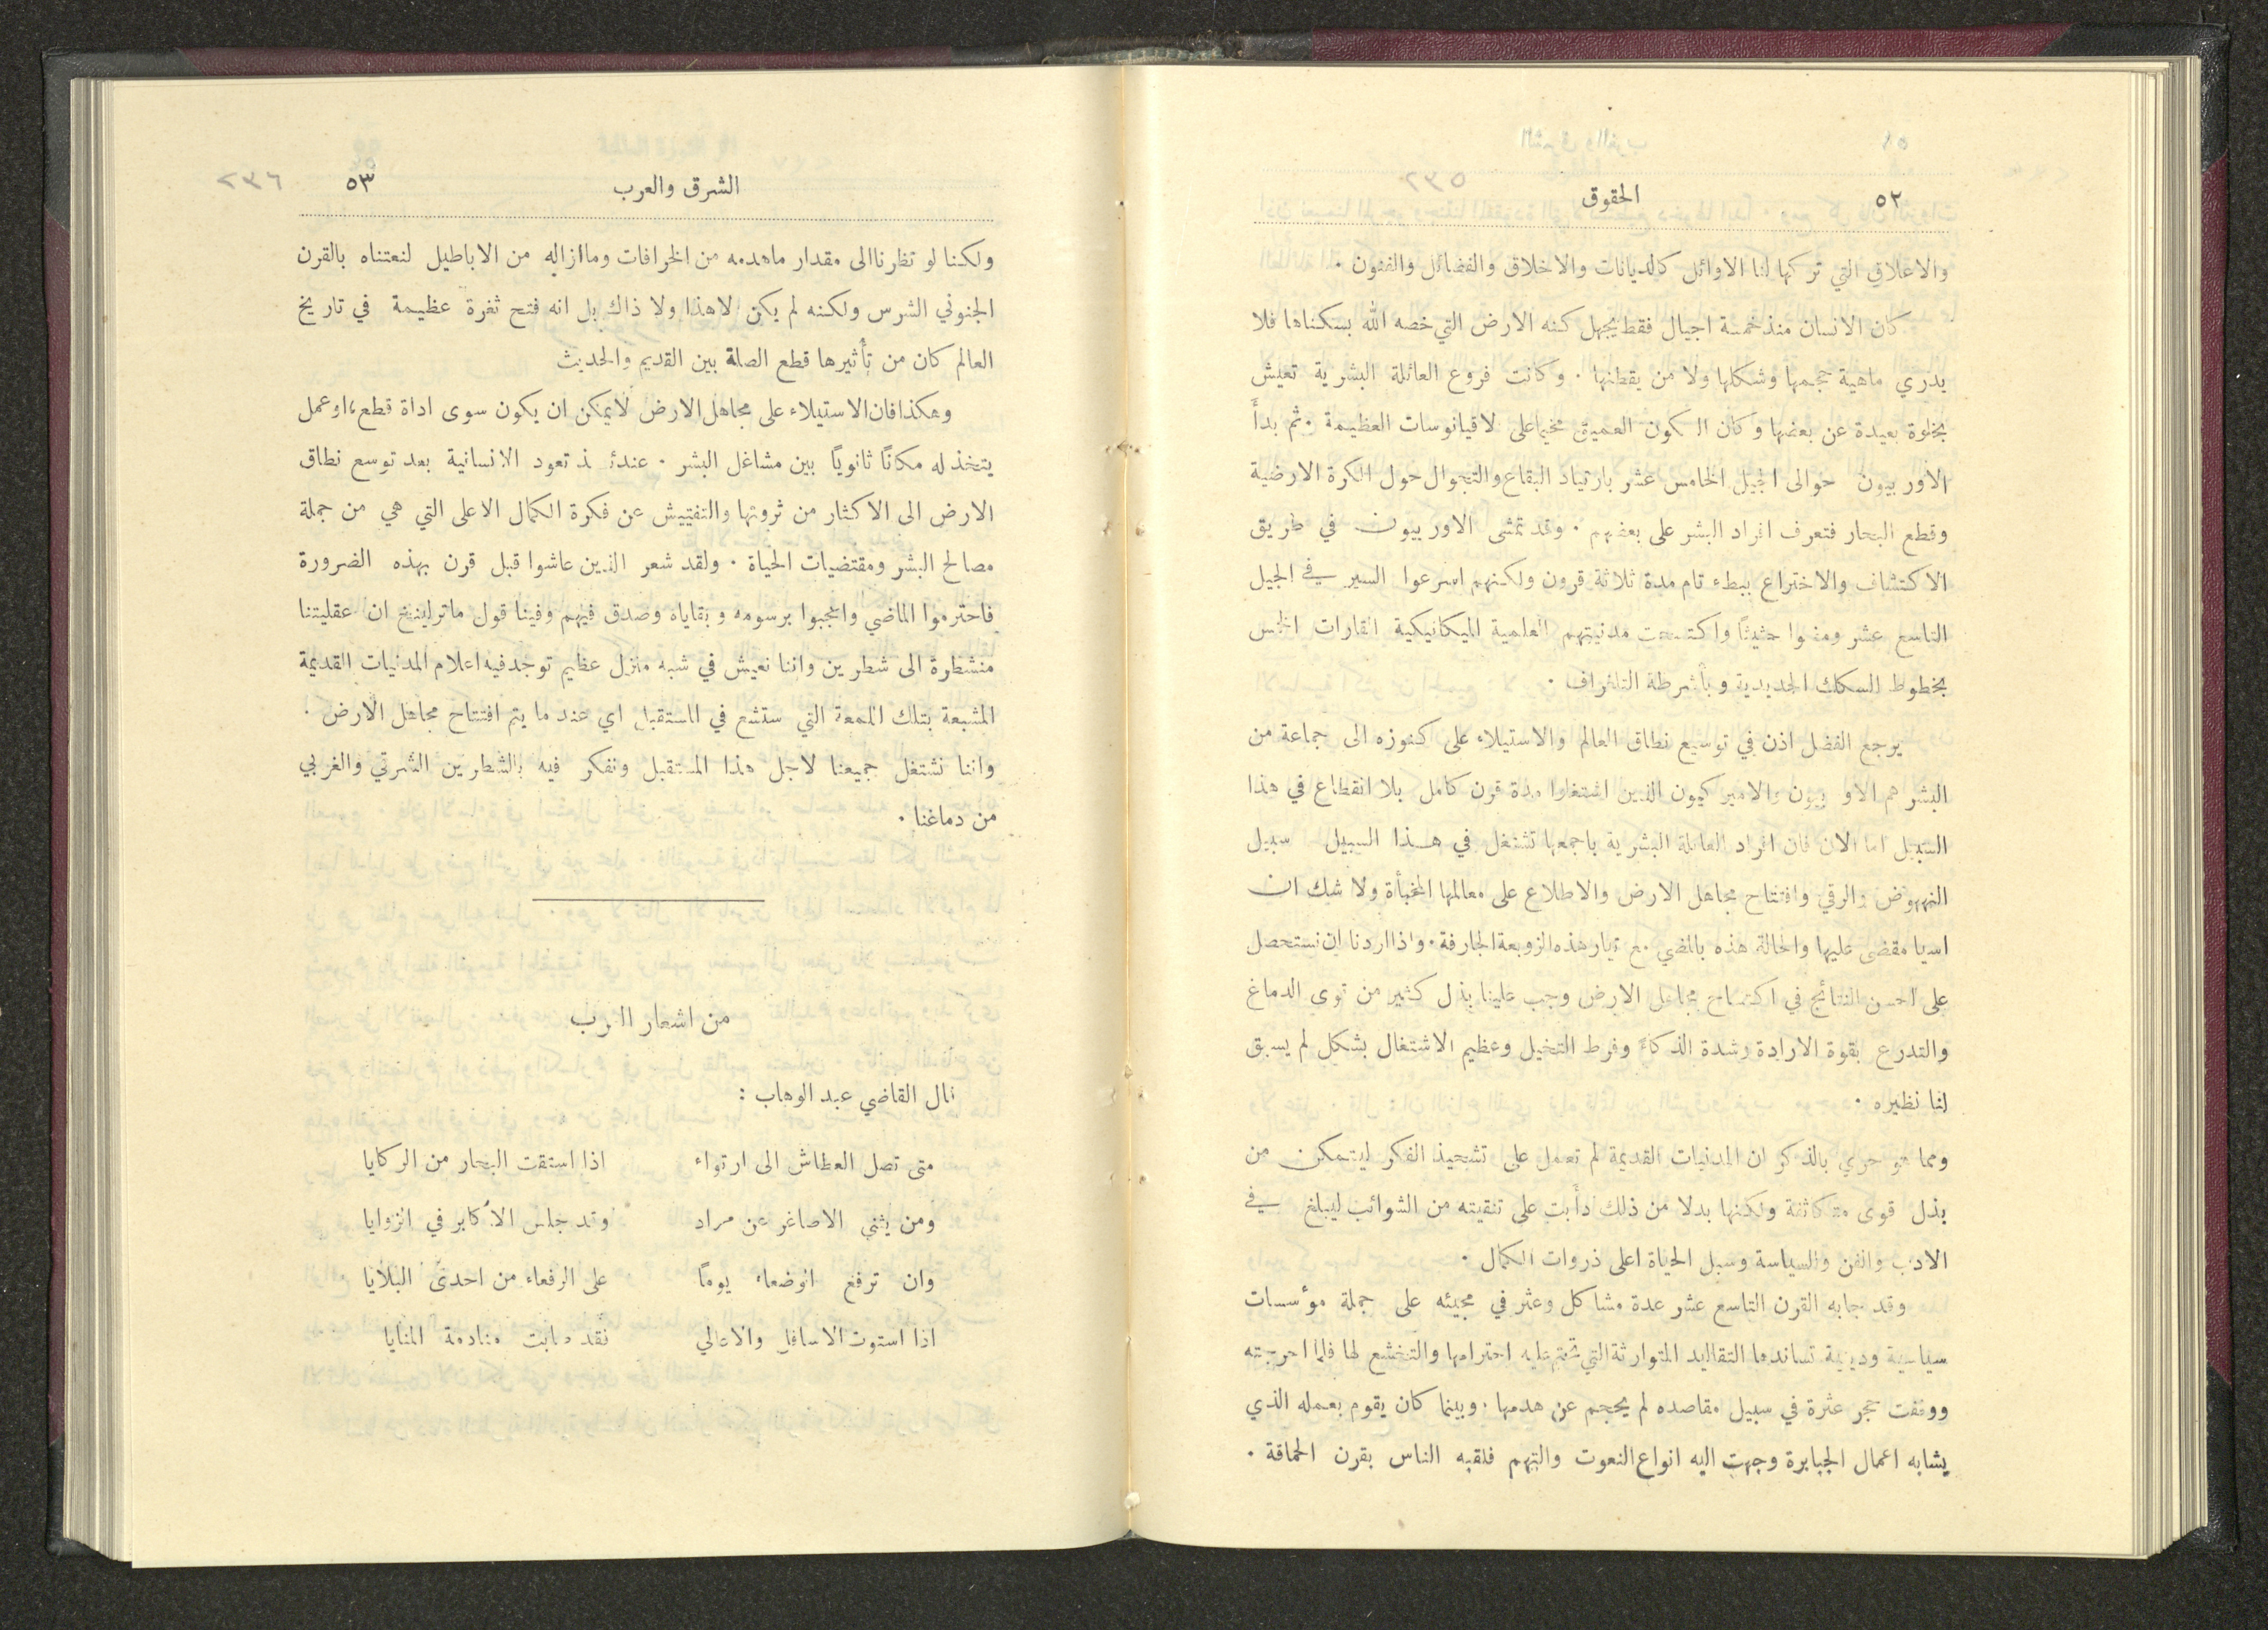 ٥٢
الحقوق
والاعلاق التي تركها لنا الاوائل كالديانات والاخلاق والفضائل والفنون ٠
كان الانسان منذ خمسة اجيال فقط يجهل كنه الارض التي خصه الله بسكناها فلا
يدري ماهية حجمها وشكلها ولا من يقطنها ٠ وكانت فروع العائلة البشرية تعيش
بخلوة بعيدة عن بعضها وكان السكون العميق مخيما على لاقيانوسات العظيمة ٠ ثم بدأ
الاوربيون حوالى الجيل الخامس عشر بارتياد البقاع والتجوال حول الكرة الارضية
وقطع البحار فتعرف افراد البشر على بعضهم ٠ وقد تمشى الاوربيون في طريق
الاكتشاف والاختراع ببطء تام مدة ثلاثة قرون ولكنهم اسرعوا السير في الجيل
التاسع عشر ومشوا حثيثًا واكتسحت مدنيتهم العلمية الميكانيكية القارات الخمس
بخطوط السكك الحديدية وبأشرطة التلغراف ٠
يرجع الفضل اذن في توسيع نطاق العالم والاستيلاء على كنوزه الى جماعة من
البشر هم الاوربيون والاميركيون الذين اشتغلوا مدة قرن كامل بلا انقطاع في هذا
السبيل اما الان فان افراد العائلة البشرية باجمعها تشتغل في هذا السبيل سبيل
النهوض والرقي وافتتاح مجاهل الارض والاطلاع على معالمها المخبأة ولا شك ان
اسيا مقضى عليها والحالة هذه بالمضي مع تيار هذه الزوبعة الجارفة ٠ واذا اردنا ان نستحصل
على احسن النتائج في اكتساح مجاهل الارض وجب علينا بذل كثير من قوى الدماغ
والتدرع بقوة الارادة وشدة الذكاء وفرط التخيل وعظيم الاشتغال بشكل لم يسبق
لنا نظيره ٠
ومما هو حري بالذكر ان المدنيات القديمة لم تعمل على تشحيذ الفكر ليتمكن من
بذل قوى متكاثفة ولكنها بدلا من ذلك دأبت على تنقيته من الشوائب ليبلغ في
الادب والفن والسياسة وسبل الحياة اعلى ذروات الكمال ٠
وقد جابه القرن التاسع عشر عدة مشاكل وعثر في مجيئه على جملة مؤسسات
سياسية ودينية تساندها التقاليد المتوارثة التي تحتم عليه احترامها والتخشع لها فلما احرجته
ووقفت حجر عثرة في سبيل مقاصده لم يحجم عن هدمها ٠ وبينما كان يقوم بعمله الذي
يشابه اعمال الجبابرة وجهت اليه انواع النعوت والتهم فلقبه الناس بقرن الحماقة ٠
الشرق والعرب
٥٣
٢٣٦
ولكنا لو نظرنا الى مقدار ماهدمه من الخرافات وما ازاله من الاباطيل لنعتناه بالقرن
الجنوني الشرس ولكنه لم يكن لاهذا ولا ذاك بل انه فتح ثغرة عظيمة في تاريخ
العالم كان من تأثيرها قطع الصلة بين القديم والحديث
وهكذا فان الاستيلاء على مجاهل الارض لايمكن ان يكون سوى اداة قطع، او عمل
يتخذ له مكانًا ثانويًا بين مشاغل البشر ٠ عندئذ تعود الانسانية بعد توسع نطاق
الارض الى الاكثار من ثروتها والتفتيش عن فكرة الكمال الاعلى التي هي من جملة
مصالح البشر ومقتضيات الحياة ٠ ولقد شعر الذين عاشوا قبل قرن بهذه الضرورة
فاحترموا الماضي واعجبوا برسومه وبقاياه وصدق فيهم وفينا قول ماترلينغ ان عقليتنا
منشطرة الى شطرين واننا نعيش في شبه منزل عظيم توجد فيه اعلام المدنيات القديمة
المشبعة بتلك اللمعة التي ستشع في المستقبل اي عند ما يتم افتتاح مجاهل الارض ٠
واننا نشتغل جميعنا لاجل هذا المستقبل ونفكر فيه بالشطرين الشرقي والغربي
من دماغنا ٠
من اشعار العرب
قال القاضي عبد الوهاب :
متى تصل العطاش الى ارتواء اذا استقت البحار من الركايا
ومن يثني الاصاغر عن مراد وقد جلس الاكابر في الزوايا
وان ترفع الوضعاء يومًا على الرفعاء من احدى البلايا
اذا استوت الاسافل والاعالي فقد طابت منادمة المنايا